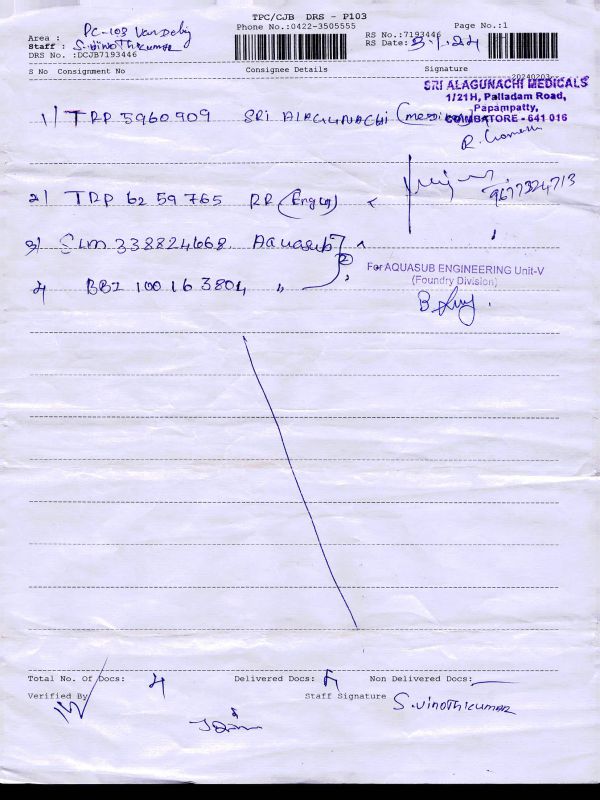 TPC/CJB DRS - P103
Area : PC-103 Van Dely
Phone No.:0422-3505555
RS No.:7193446
Page No.:1
Staff : S.vinothkumar
RS Date:
DRS No. :DCJB7193446
S No Consignment No Consignee Details Signature
20240203
SRI ALAGUNACHI MEDICALS
1/21H, Palladam Road,
Papampatty,
COIMBATORE - 641 016
1) TRP 5960909 SRI AlAGUNACHI (medical)
2) TRP 6259765 RR (Engg)
9677324713
3) SLM 338824668 Aquasub
4 BBI 100163804 "
2
For AQUASUB ENGINEERING Unit-V
(Foundry Division)
Total No. Of Docs: 4 Delivered Docs: 4 Non Delivered Docs:
Verified By
Staff Signature S.vinothkumar